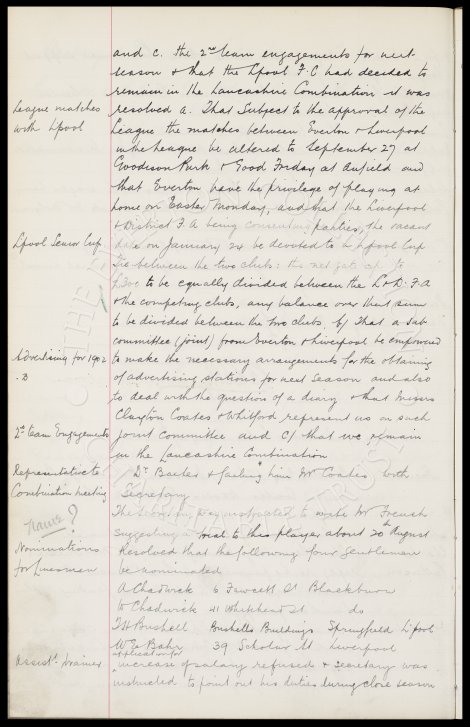 and c. the 2nd team engagements for next
season & that the Lpool F.C had decided to
remain in the Lancashire Combination it was
League matches
with Lpool
resolved a. That subject to the approval of the
League the matches between Everton & Liverpool
in the League be altered to September 27 at
Goodison Park & Good Friday at Anfield and
that Everton have the privilege of playing at
home on Easter Monday, and that the Liverpool
& District F.A being consenting parties, the vacant
Lpool Senior Cup
date on January 24 be devoted to a Lpool Cup
Tie between the two clubs: the net gate up to
£200 to be equally divided between the L & D. F.A
& the competing clubs, any balance over that sum
to be divided between the two clubs, b/ That a sub-
committee (joint) from Everton & Liverpool be empowered
Advertising for 1902
.3
to make the necessary arrangements for the obtaining
of advertising stations for next season and also
to deal with the question of a diary & that Messrs
Clayton Coates & Whitford represent us on such
2nd team Engagements
joint committee and c/ that we remain
in the Lancashire Combination
Representative to
Combination meeting
Dr Baxter & failing him Mr Coates with
Secretary
Name?
The Secretary was instructed to write Mr French
suggesting a trial to this player about 20th August
Nominations
for Linesmen
Resolved that the following four Gentlemen
be nominated
A Chadwick 6 Fawcett St Blackburn
W Chadwick 41 Whitehead St do
T H Bushell Bushells Buildings Springfield L'pool
W E Bahr 39 Scholar St Liverpool
Assist. Trainer
application for
increase of salary refused & Secretary was
instructed to point out his duties during close season